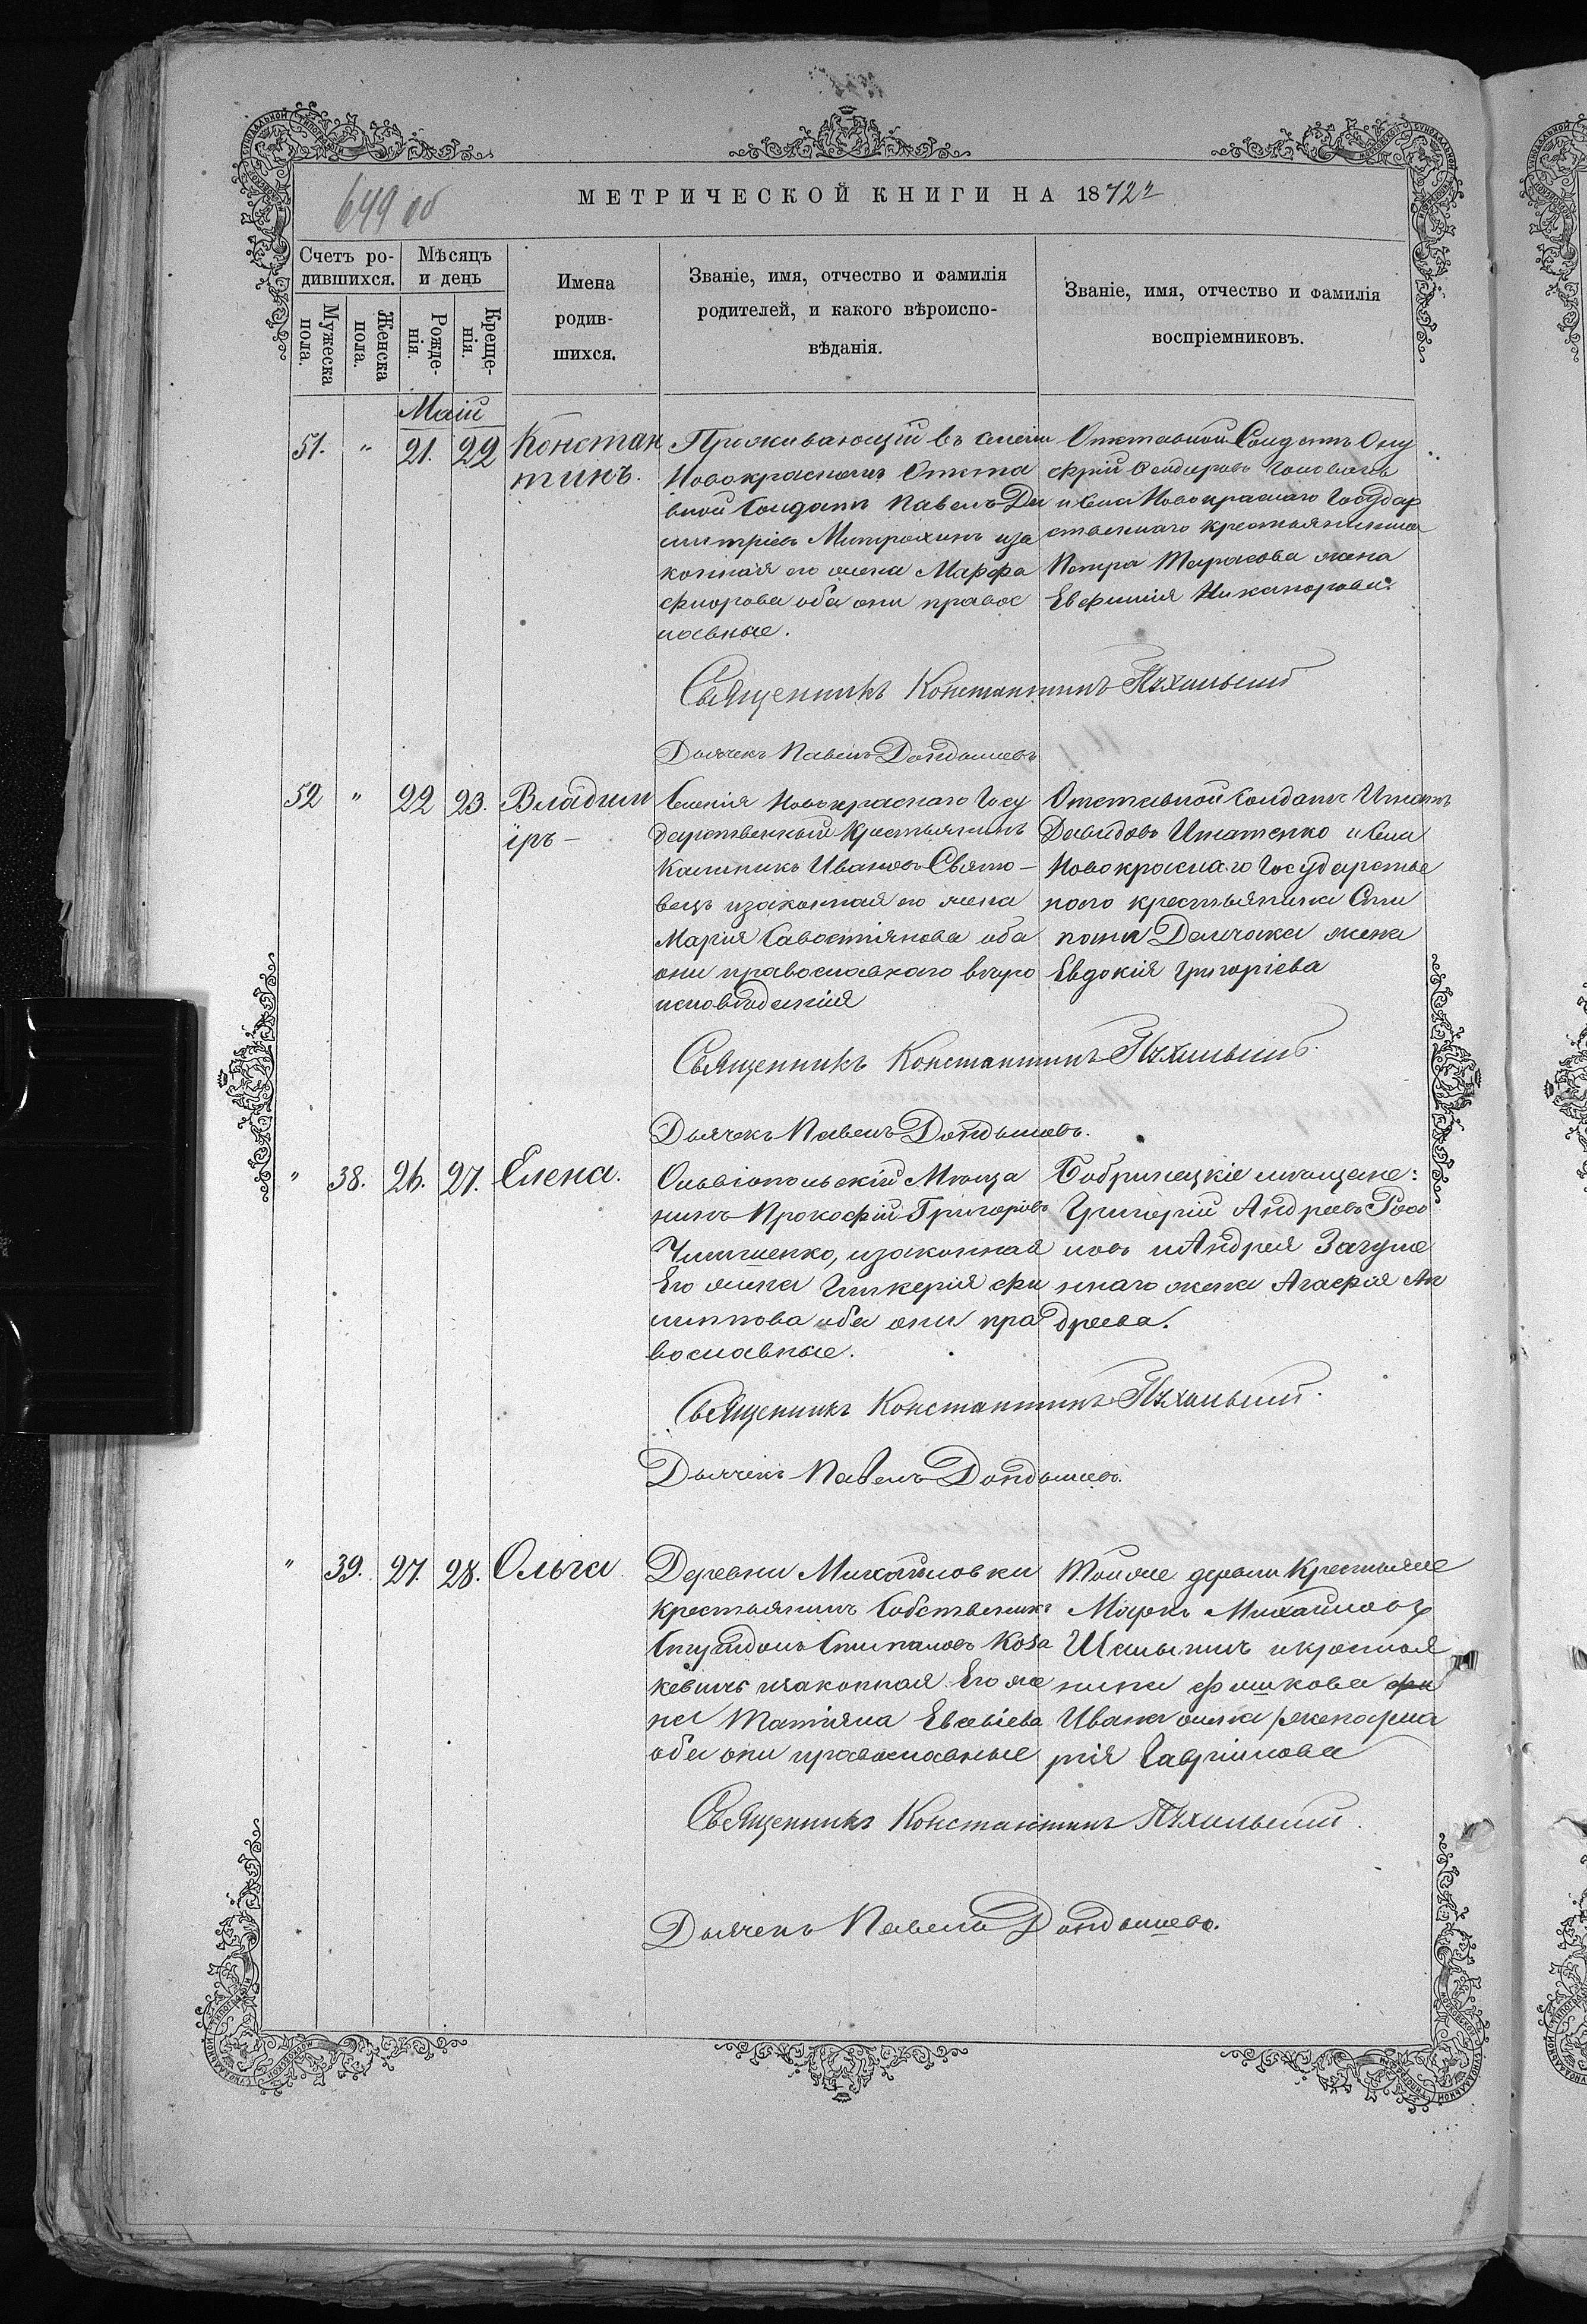 649 об
МЕТРИЧЕСКОЙ КНИГИ НА 1872 г
Счетъ ро-
дившихся.
Мужеска
пола.
Женска
пола.
Мѣсяцъ
и день
Рожде-
нія.
Креще-
нія.
Имена
родив-
шихся.
Званіе, имя, отчество и фамилія
родителей, и какого вѣроиспо-
вѣданія.
Званіе, имя, отчество и фамилія
воспріемниковъ.
Маій
51. " 21. 22 Констан
тинъ.
Проживающій въ селеніи
Новокрасномъ Отста
вной Солдатъ Павелъ Ди
митріевъ Митрохинъ иза
конная его жена Марфа
обе они правос
лавные.
Отставной Солдатъ Ону
фрій
и села Новокраснаго Государ
ственнаго крестьянина
Петра Тарасова жена
Евфимія Никанорова.
Священникъ Константинъ
Дьячекъ Павелъ Дондышевъ
52 " 22 23. Владим
іръ –
Селенія Новокраснаго Госу
дарственный Крестьянинъ
Калиникъ Ивановъ Свято-
вецъ изаконная его жена
Марія Савостіянова оба
они православнаго вѣро
исповѣданія
Отставной Солдатъ Игнатъ
Давидовъ Игнатенко и села
Новокраснаго Государстве
ного крестьянина
жена
Евдокія Григоріева
Священникъ Константинъ
Дьячекъ Павелъ Дондышевъ.
" 38. 26. 27. Елена.
Ольвіопольскій Мѣща
нинъ Прокофій Григоріевъ
изаконная
Его жена Гликерія Фи
липпова оба они пра
вославные.
Бобринецкіе мѣщане:
Григорій Андреевъ
и Андрея
жена Агафія Ан
дреева.
Священникъ Константинъ
Дьячекъ Павелъ Дондышевъ.
" 39. 27. 28. Ольга
Деревни Михайловки
Крестьянинъ Собственникъ
Коза
кевичъ изаконная Его же
на Татіяна Евсевіева
оба они православные
Той же деревни Крестьяне
Маркъ Михайловъ
и крестья
нина
Ивана жена
рія Гавріилова
Священникъ Константинъ
Дьячекъ Павелъ Дондышевъ.